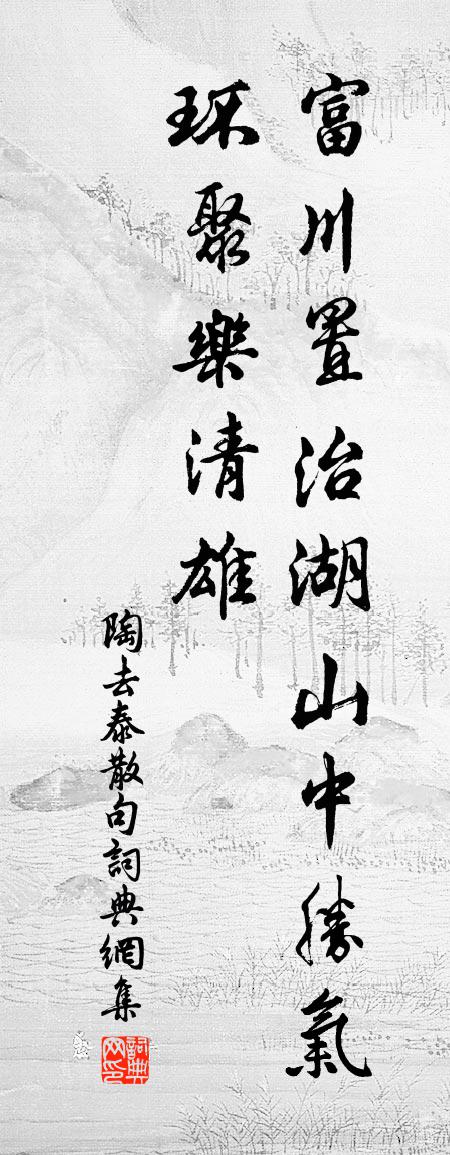 富川置治湖山中勝氣
环聚樂清雄
陶去泰散句詞典網集
詞典网印